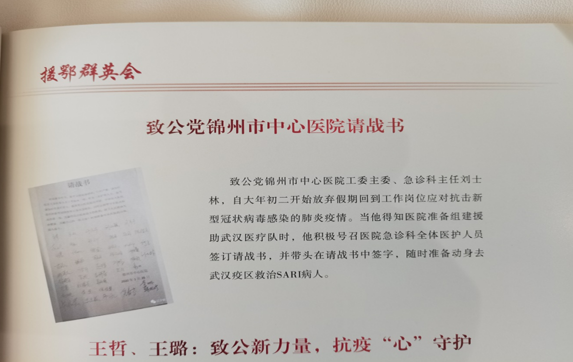 援鄂群英会
致公党锦州市中心医院请战书
致公党锦州市中心医院工委主委、急诊科主任刘士
林，自大年初二开始放弃假期回到工作岗位应对抗击新
型冠状病毒感染的肺炎疫情。当他得知医院准备组建援
助武汉医疗队时，他积极号召医院急诊科全体医护人员
签订请战书，并带头在请战书中签字，随时准备动身去
武汉疫区救治SARI病人。
请战书
王哲、王璐：致公新力量，抗疫“心”守护